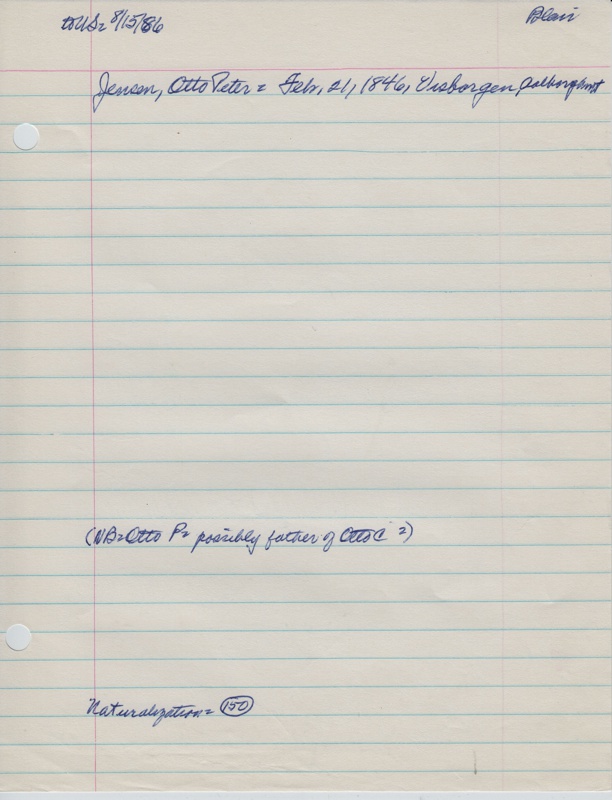 to US= 8/15/86
Blair
Jensen, Otto Peter = Feb, 21, 1846, Visborgen, Aalborg Amt
(NB= Otto P= possibly father of Otto C ?)
Naturalization= 150